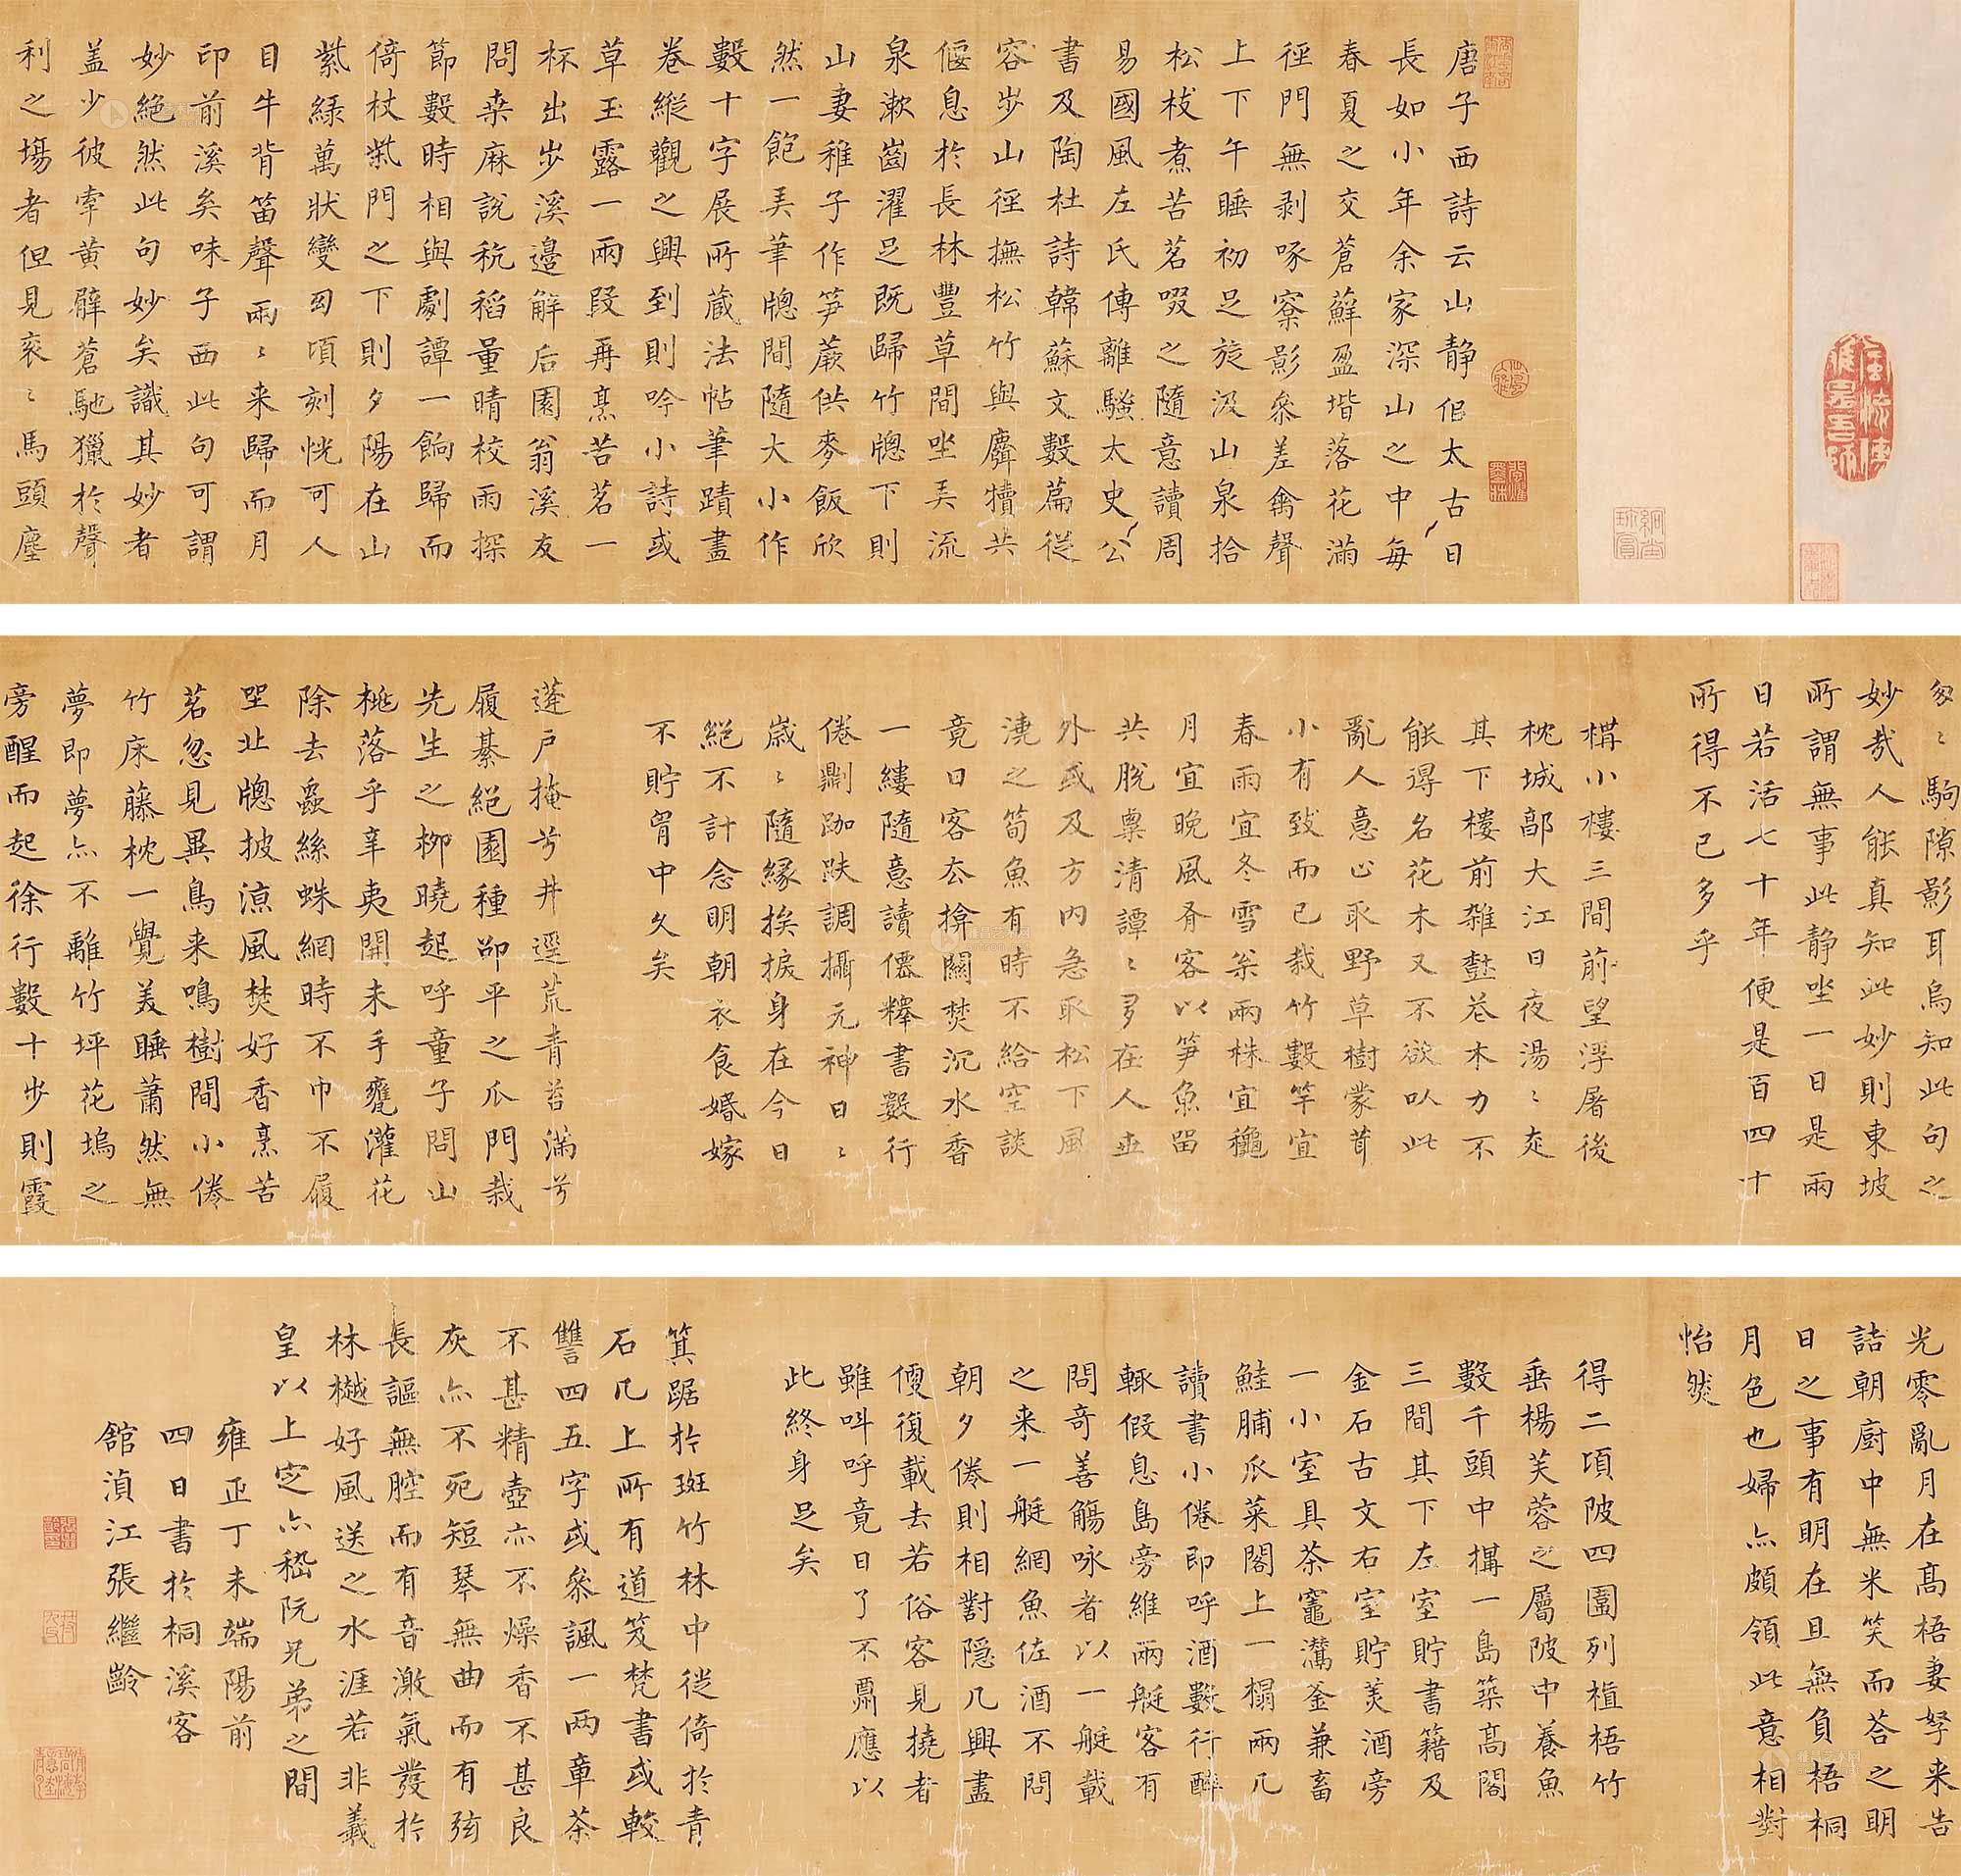 唐子西詩云山静佀太古日
長如小年余家深山之中每
春夏之交蒼蘚盈堦落花滿
徑門無剥啄窽影參差禽聲
上下午睡初足旋汲山泉拾
松枝煮苦茗啜之隨意讀周
易國風左氏傳離騷太史公
書及陶杜詩韓蘇文數篇從
容步山徑撫松竹與麛犢共
偃息於長林豐草間坐弄流
泉漱齒濯足既歸竹牕下則
山妻稚子作笋蕨供麥飯欣
然一飽弄筆牕間隨大小作
數十字展所蔵法帖筆蹟畫
卷縱觀之興到則吟小詩或
草玉露一兩段再烹苦茗一
杯出步溪邉解后園翁溪友
問桒麻説秔稻量晴校雨探
節數時相與劇譚一餉歸而
倚杖柴門之下則夕陽在山
紫緑萬狀變幻頃刻恍可人
目牛背笛聲兩〻来歸而月
印前溪矣味子西此句可謂
妙絶然此句妙矣識其妙者
盖少彼牽黄臂蒼馳獵於聲
利之塲者但見衮〻馬頭塵
匆〻駒隙影耳烏知此句之
妙哉人能真知此妙則東坡
所謂無事此静坐一日是兩
日若活七十年便是百四十
所得不已多乎
構小樓三間前望浮屠後
枕城郭大江日夜湯〻在
其下樓前雑蓺花木力不
能得名花木又不欲以此
亂人意止取野草樹蒙茸
小有致而已栽竹數竿宜
春雨宜冬雪桒兩株宜龝
月宜晚風脊客以笋魚留
共脫粟清譚〻多在人世
外或及方内急取松下風
澆之筍魚有時不給空談
竟日客去揜關焚沉水香
一縷隨意讀僊釋書數行
倦劘跏趺調攝元神日〻
歲〻隨緣挨捩身在今日
絕不計念明朝衣食婚嫁
不貯胷中久矣
蓬戸掩兮井逕荒青苔滿兮
履綦絕園種邵平之瓜門栽
先生之栁曉起呼童子問山
桃落乎辛夷開未手甕灌花
除去蟲絲蛛網時不巾不履
坐北牕披涼風焚好香烹苦
茗忽見異鳥来鳴樹間小倦
竹床藤枕一覺美睡蕭然無
夢即夢亦不離竹坪花塢之
旁醒而起徐行數十步則霞
光零亂月在髙梧妻孥来告
詰朝厨中無米笑而荅之明
日之事有明在且無負梧桐
月色也婦亦頗領此意相對
怡然
得二頃陂四圍列植梧竹
垂楊芙蓉之屬陂中養魚
數千頭中構一島築髙閣
三間其下左室貯書籍及
金石古文右室貯美酒旁
一小室具茶竈鬵釜兼畜
鮭脯瓜菜閣上一榻兩几
讀書小倦即呼酒數行醉
輒假息島旁維兩艇客有
問奇善觴咏者以一艇載
之来一艇網魚佐酒不問
朝夕倦則相對隠几興盡
僾復載去若俗客見撓者
雖呌呼竟日了不䎡應以
此終身足矣
箕踞於斑竹林中徙倚於青
石几上所有道笈梵書或較
讐四五字或參諷一两章茶
不甚精壺亦不燥香不甚良
灰亦不死短琴無曲而有弦
長謳無腔而有音激氣發於
林樾好風送之水涯若非羲
皇以上定亦嵇阮兄弟之間
雍正丁未端陽前
四日書於桐溪客
舘湞江張繼齡